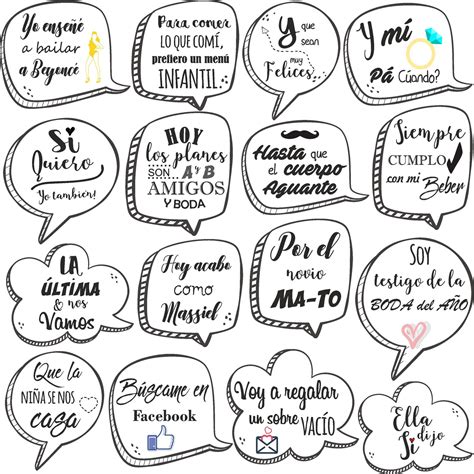 Yo enseñé
a bailar
a Beyoncé
Para comer
LO QUE COMÍ,
prefiero un menú
INFANTIL
Y que
sean
muy
Felices
Y mí
PÁ Cúando?
Si
Quiero
Yo también!
HOY
los planes
SON A y B
AMIGOS
Y BODA
Hasta que
el cuerpo
Aguante
Siempre
CUMPLO
con mi
Beber
LA
ÚLTIMA
& nos
Vamos
Hoy acabo
como
Massiel
Por el
novio
MA-TO
SOY
testigo de la
BODA del AÑO
Que la
NIÑA SE NOS
CASA
Búscame en
Facebook
Voy a regalar
un sobre VACÍO
Ella
dijo
Si